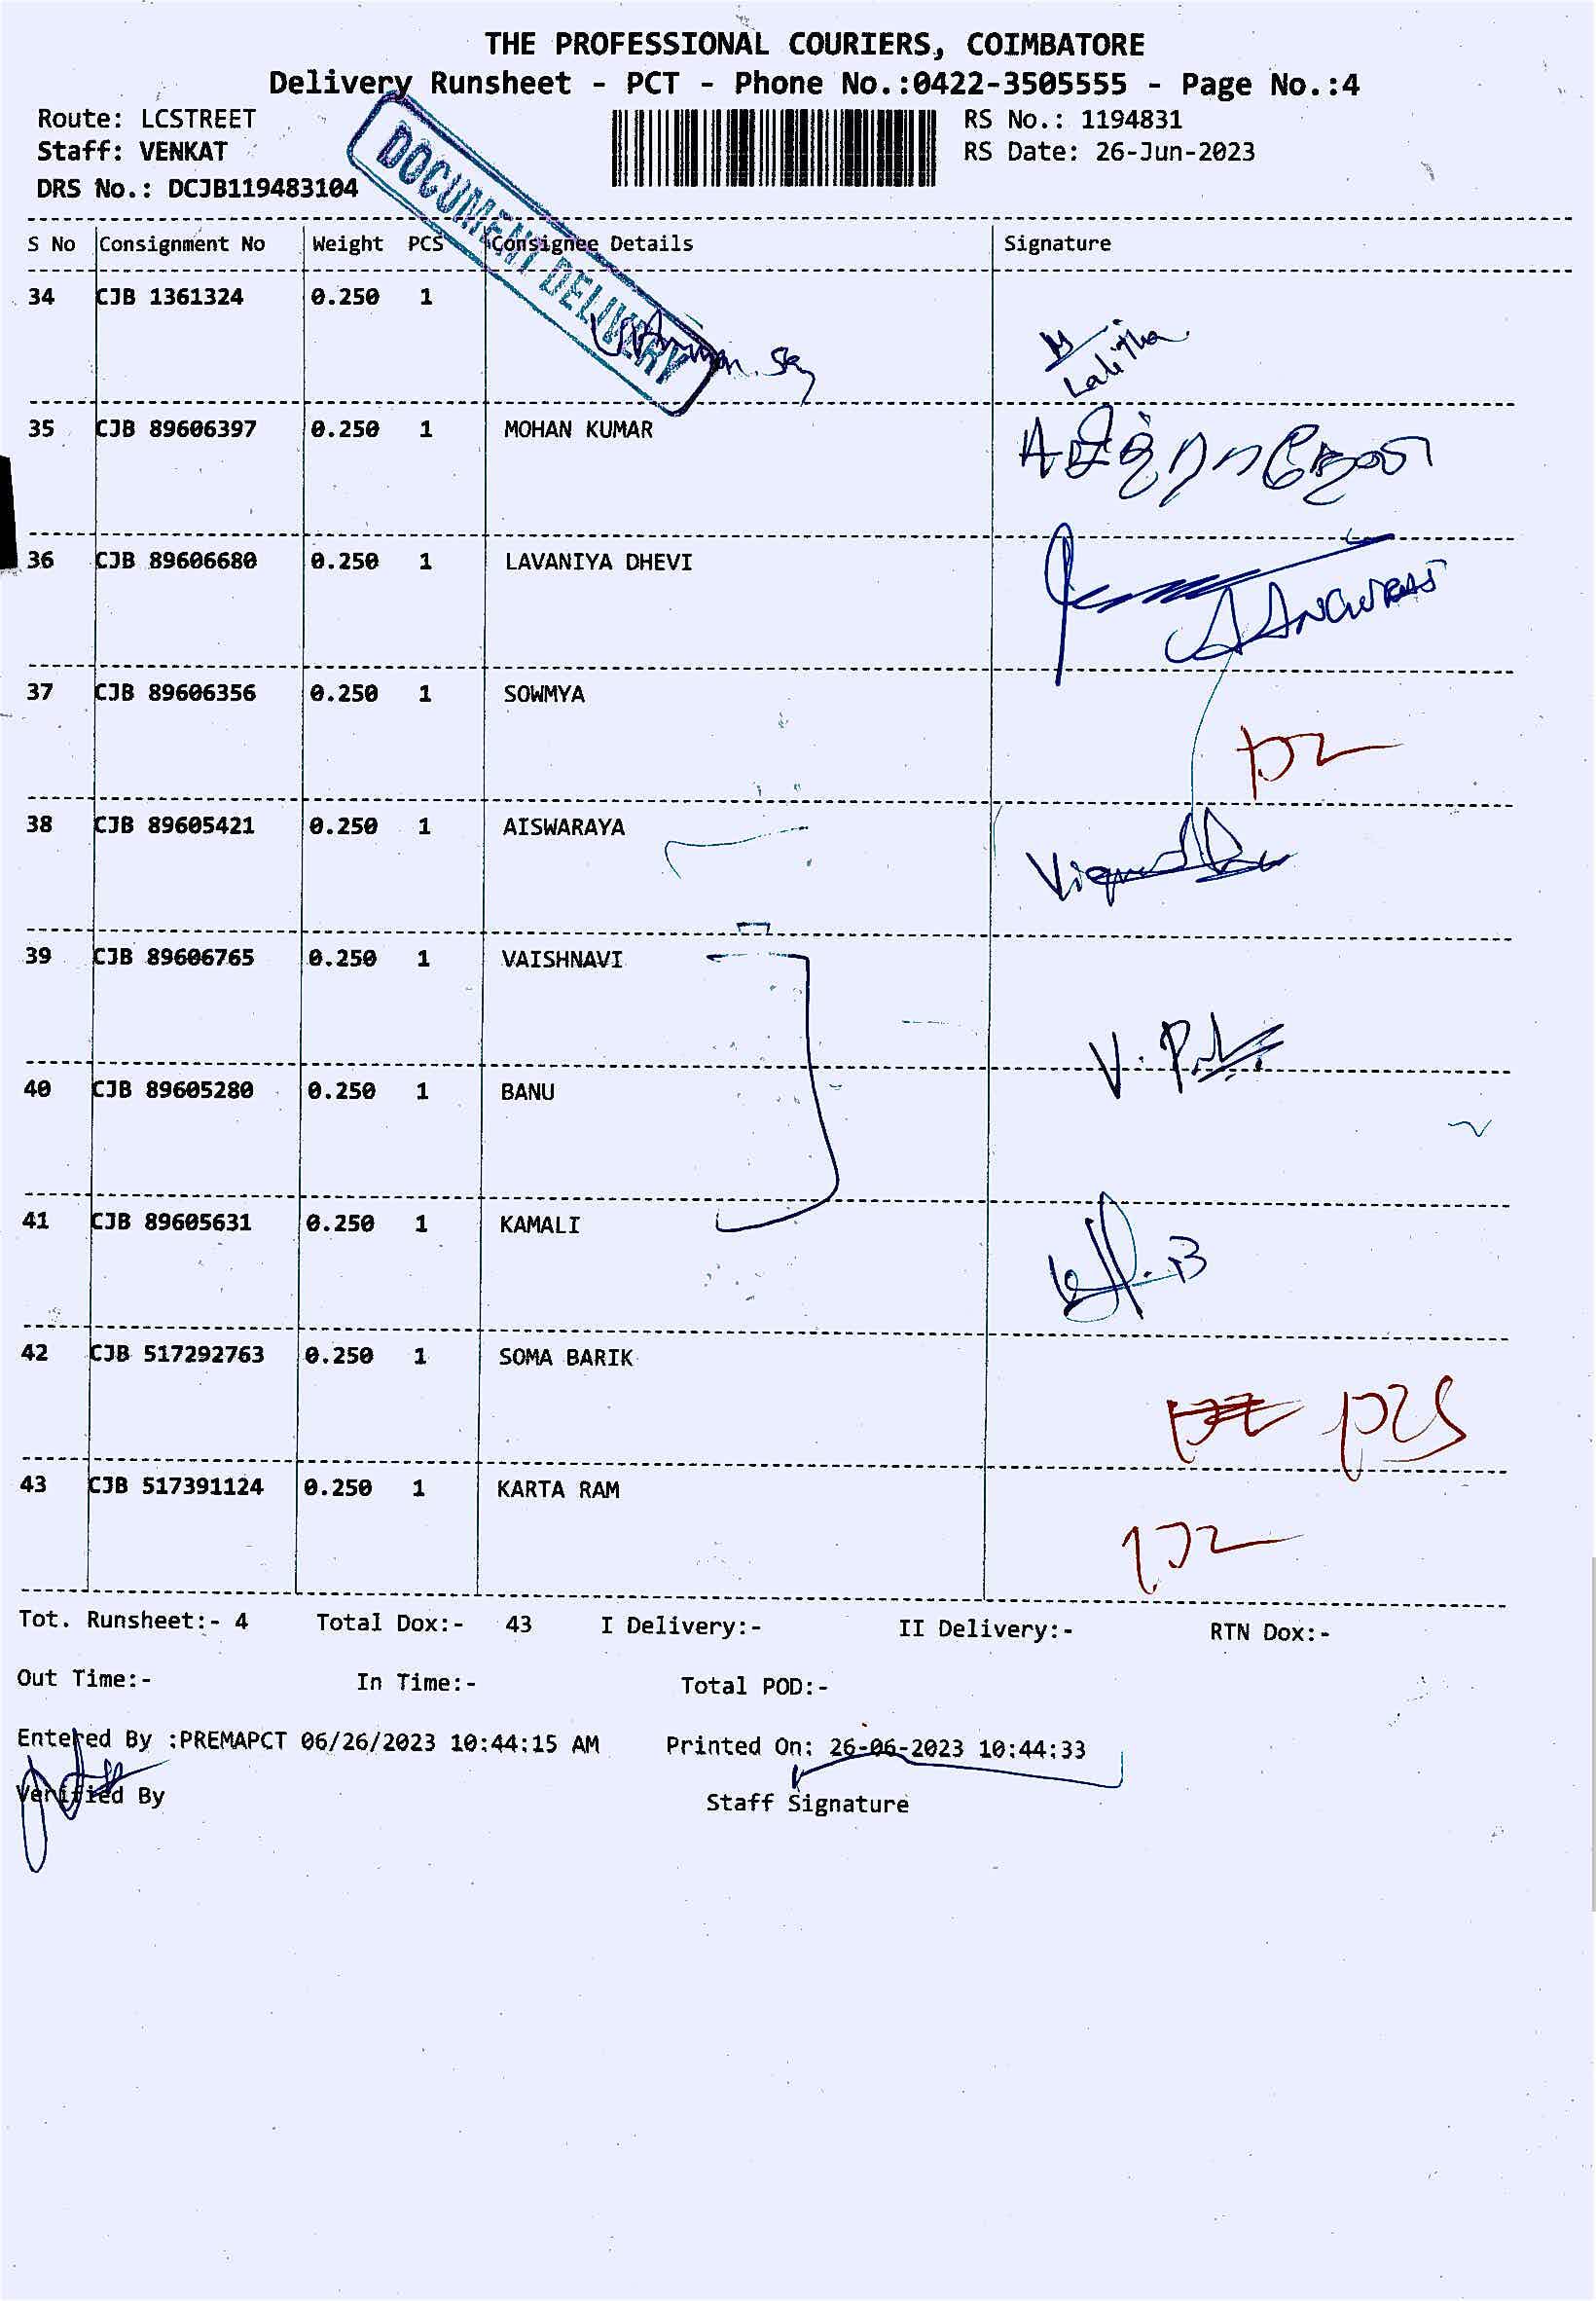 THE PROFESSIONAL COURIERS, COIMBATORE
Delivery Runsheet - PCT - Phone No.:0422-3505555 - Page No.:4
Route: LCSTREET
RS No.: 1194831
Staff: VENKAT
RS Date: 26-Jun-2023
DRS No.: DCJB119483104
DOCUMENT DELIVERY
S No Consignment No Weight PCS Consignee Details Signature
34 CJB 1361324 0.250 1
M
Lalitha
35 CJB 89606397 0.250 1 MOHAN KUMAR
36 CJB 89606680 0.250 1 LAVANIYA DHEVI
37 CJB 89606356 0.250 1 SOWMYA
38 CJB 89605421 0.250 1 AISWARAYA
39 CJB 89606765 0.250 1 VAISHNAVI
40 CJB 89605280 0.250 1 BANU
41 CJB 89605631 0.250 1 KAMALI
42 CJB 517292763 0.250 1 SOMA BARIK
43 CJB 517391124 0.250 1 KARTA RAM
Tot. Runsheet:- 4 Total Dox:- 43 I Delivery:- II Delivery:- RTN Dox:-
Out Time:- In Time:- Total POD:-
Entered By :PREMAPCT 06/26/2023 10:44:15 AM Printed On: 26-06-2023 10:44:33
Verified By Staff Signature